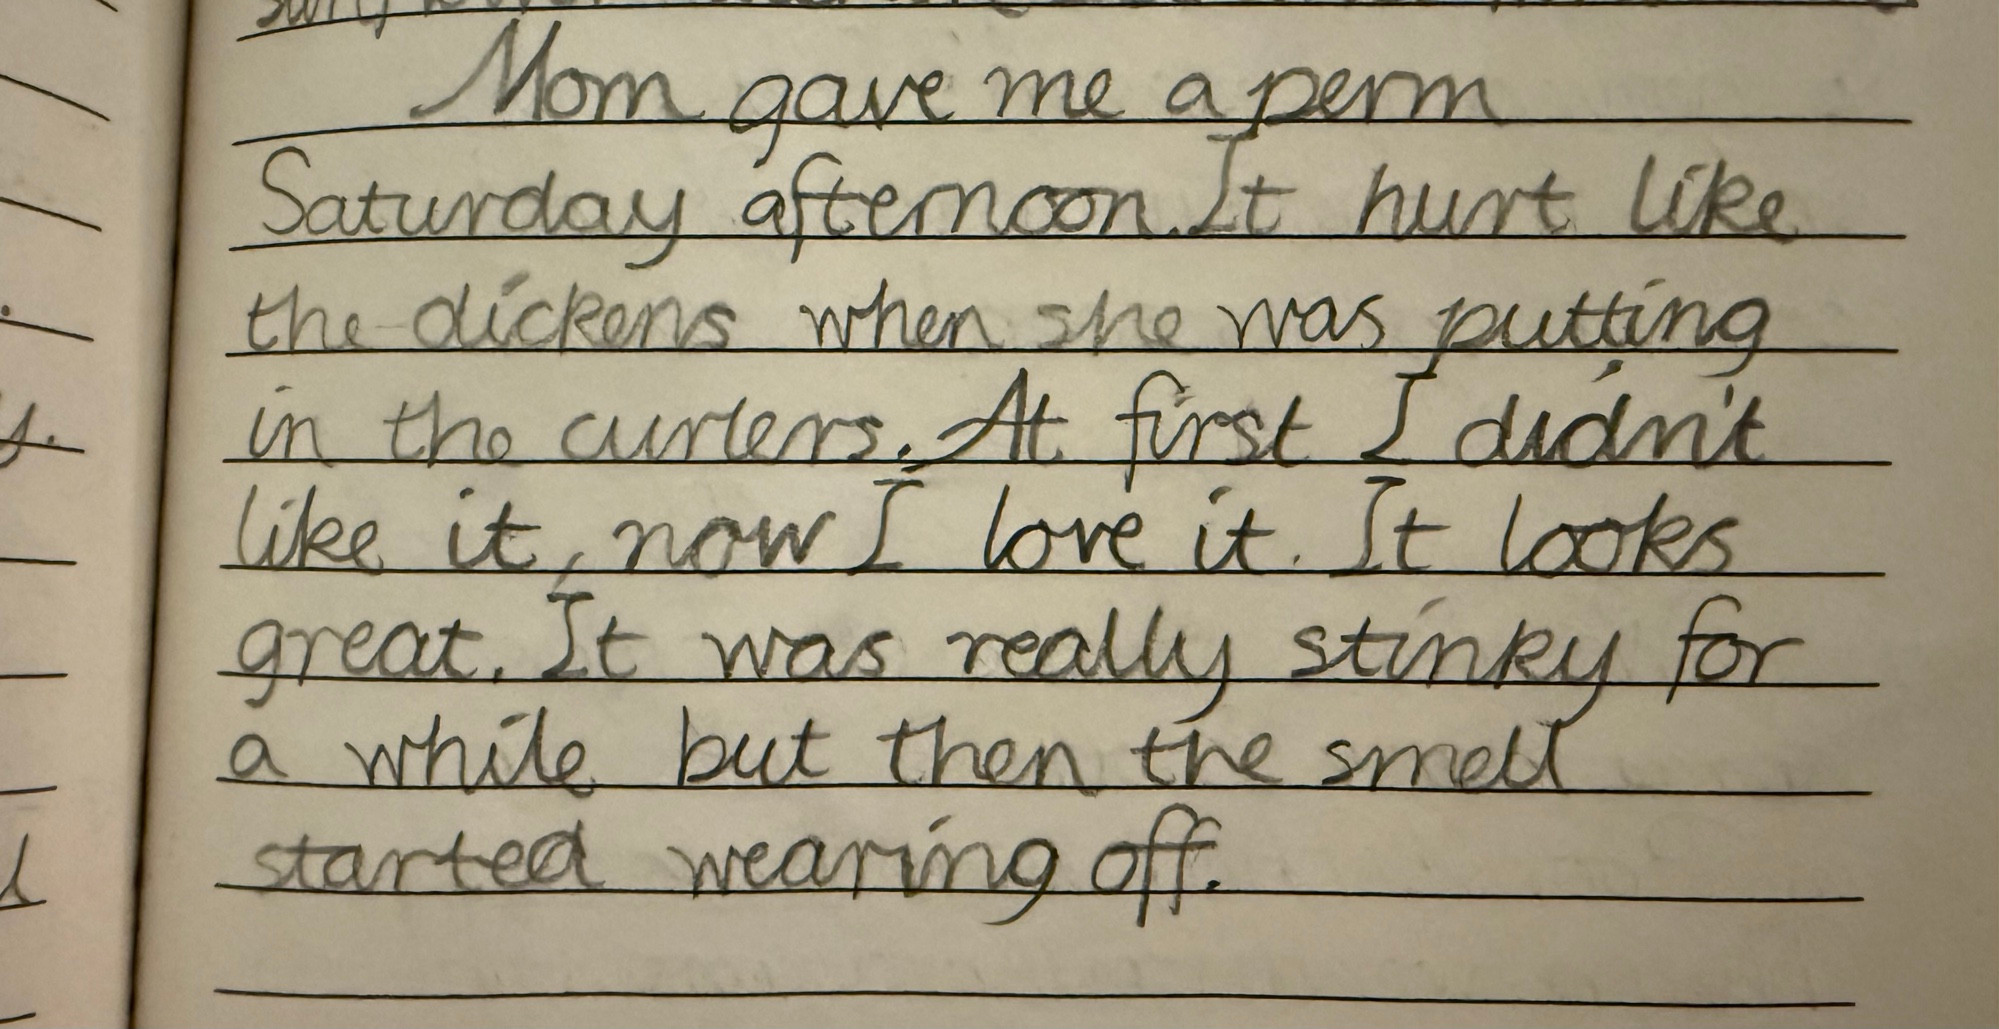 Mom gave me a perm
Saturday afternoon. It hurt like
the dickens when she was putting
in the curlers. At first I didn't
like it, now I love it. It looks
great. It was really stinky for
a while but then the smell
started wearing off.